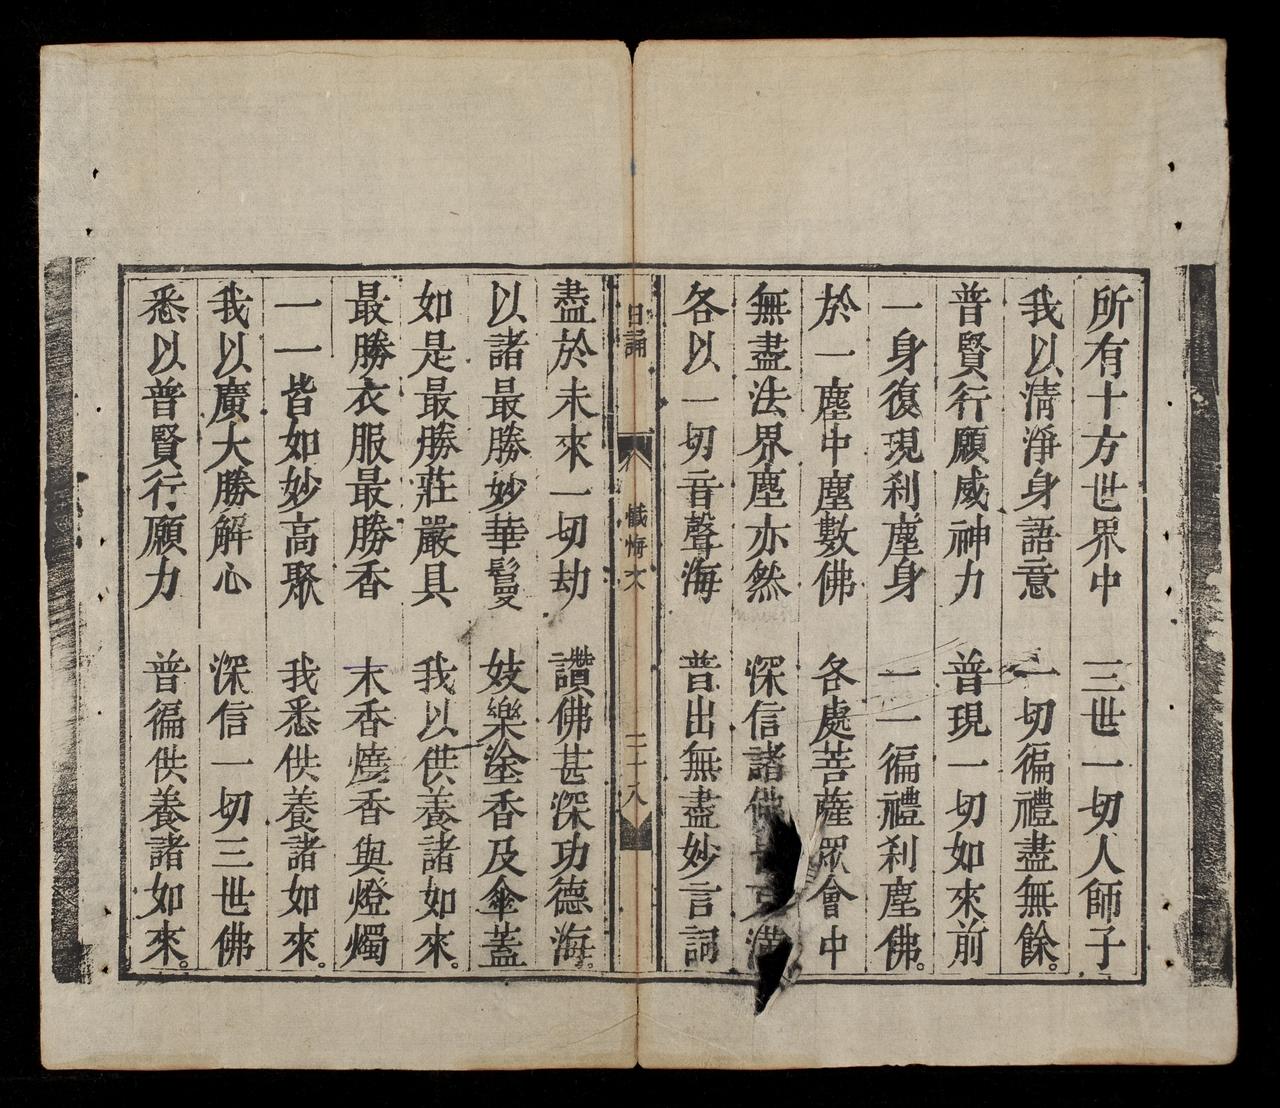 所有十方世界中　三世一切人師子
我以清淨身語意　一切徧禮盡無餘。
普賢行願威神力　普現一切如來前
一身復現刹塵身　一一徧禮刹塵佛。
於一塵中塵數佛　各處菩薩眾會中
無盡法界塵亦然　深信諸佛皆充滿
各以一切音聲海　普出無盡妙言詞
日誦　懺悔文　二十八
盡於未來一切劫　讚佛甚深功德海。
以諸最勝妙華鬘　妓樂塗香及傘蓋
如是最勝莊嚴具　我以供養諸如來。
最勝衣服最勝香　末香燒香與燈燭
一一皆如妙高聚　我悉供養諸如來。
我以廣大勝解心　深信一切三世佛
悉以普賢行願力　普徧供養諸如來。